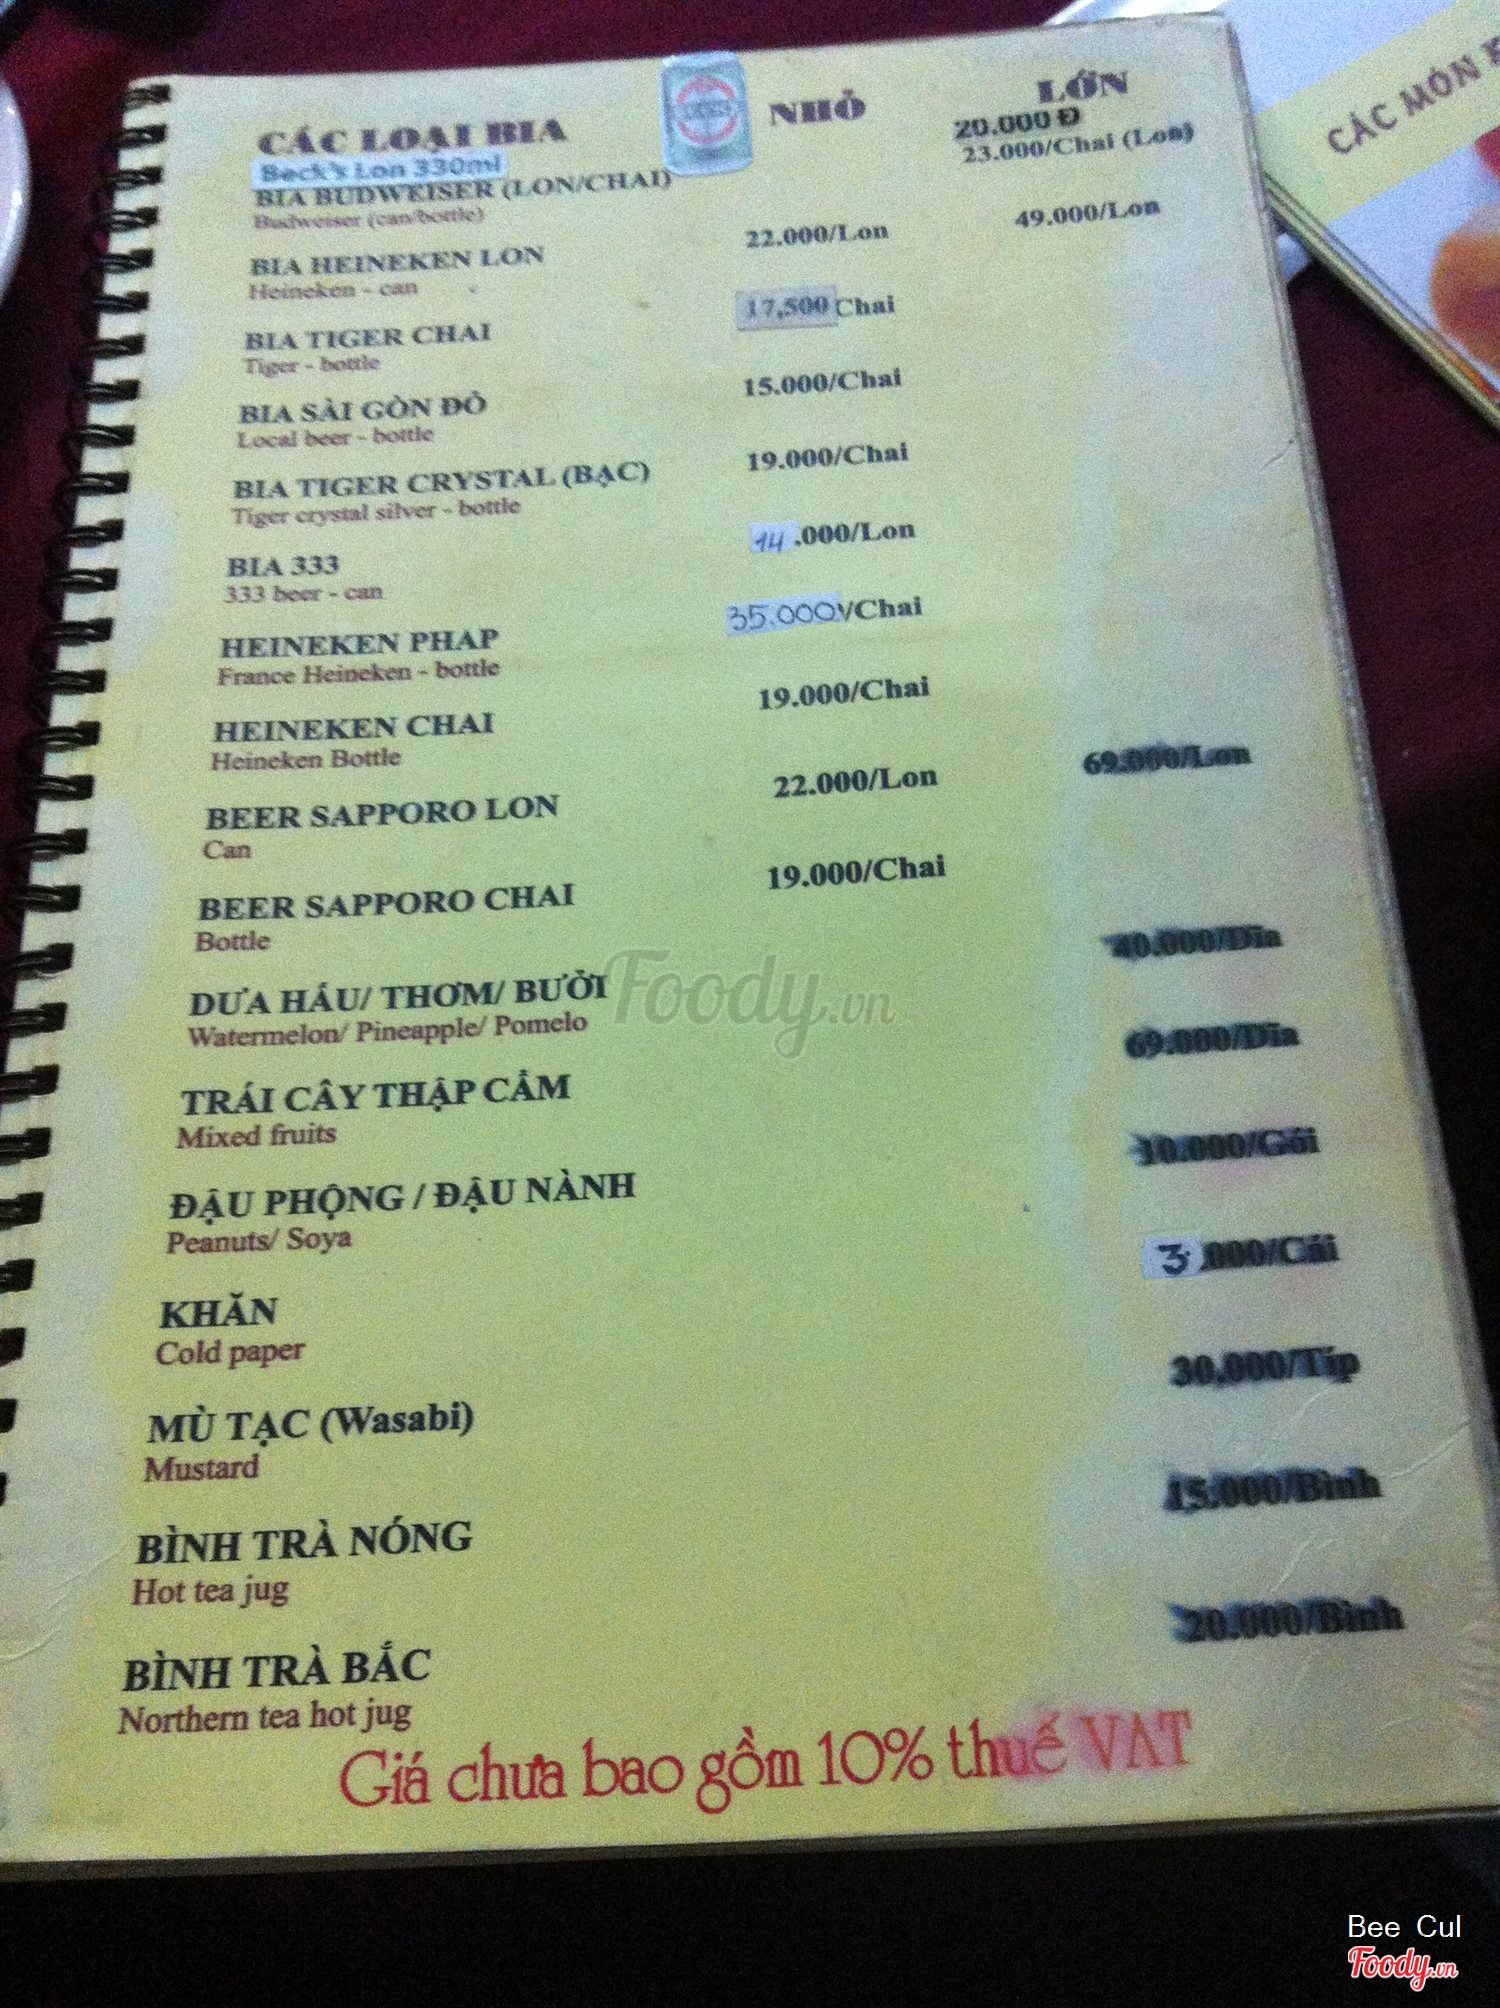 CÁC LOẠI BIA NHỎ LỚN
Beck's Lon 330ml 20.000 Đ
BIA BUDWEISER (LON/CHAI) 23.000/Chai (Lon)
Budweiser (can/bottle)
BIA HEINEKEN LON 22.000/Lon 49.000/Lon
Heineken - can
BIA TIGER CHAI 17,500 Chai
Tiger - bottle
BIA SÀI GÒN ĐỎ 15.000/Chai
Local beer - bottle
BIA TIGER CRYSTAL (BẠC) 19.000/Chai
Tiger crystal silver - bottle
BIA 333 14.000/Lon
333 beer - can
HEINEKEN PHAP 35.000/Chai
France Heineken - bottle
HEINEKEN CHAI 19.000/Chai
Heineken Bottle
BEER SAPPORO LON 22.000/Lon 69.000/Lon
Can
BEER SAPPORO CHAI 19.000/Chai
Bottle
DƯA HẤU/ THƠM/ BƯỞI 40.000/Dĩa
Watermelon/ Pineapple/ Pomelo
TRÁI CÂY THẬP CẨM 69.000/Dĩa
Mixed fruits
ĐẬU PHỘNG / ĐẬU NÀNH 10.000/Gói
Peanuts/ Soya
KHĂN 3.000/Cái
Cold paper
MÙ TẠC (Wasabi) 30,000/Típ
Mustard
BÌNH TRÀ NÓNG 15.000/Bình
Hot tea jug
BÌNH TRÀ BẮC 20.000/Bình
Northern tea hot jug
Giá chưa bao gồm 10% thuế VAT
CÁC MÓN
Foody.vn
Bee Cul
Foody.vn